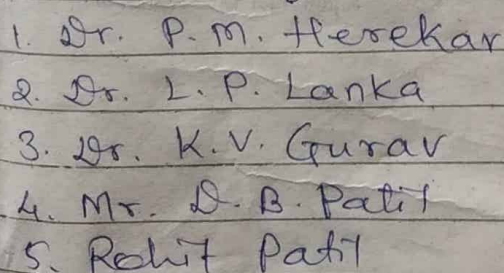 1. Dr. P. M. Herekar
2. Dr. L. P. Lanka
3. Dr. K. V. Gurav
4. Mr. D. B. Patil
5. Rohit Patil